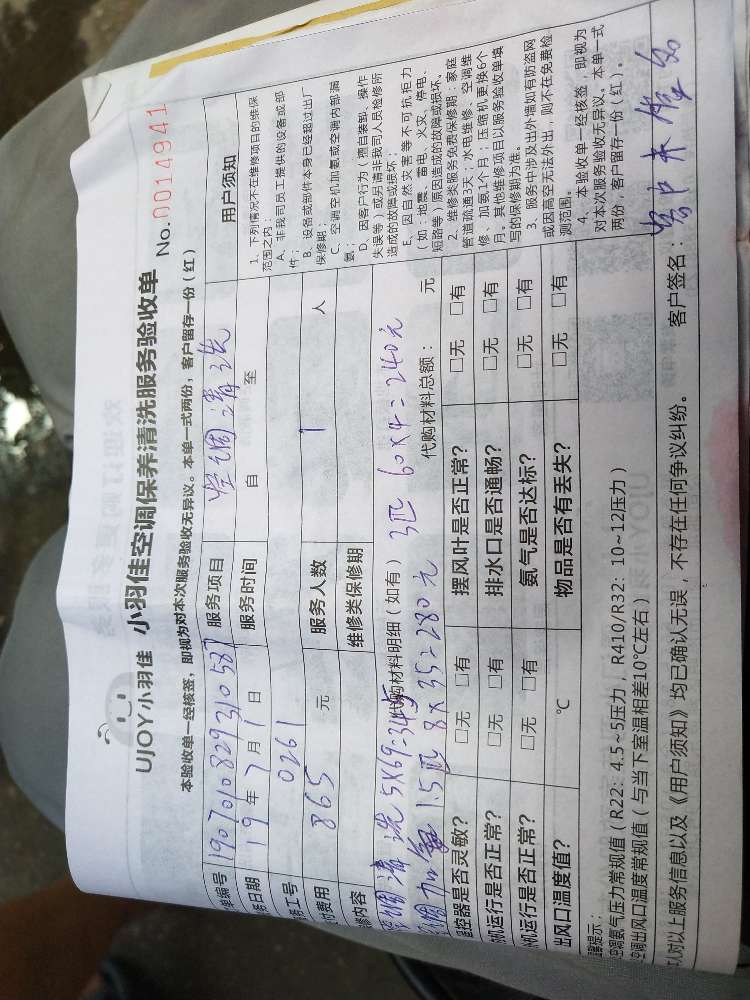 UJOY小羽佳 小羽佳空调保养清洗服务验收单 No.0014941
本验收单一经核签，即视为对本次服务验收无异议。本单一式两份，客户留存一份（红）
单编号 190701082931058 服务项目 空调清洗
日期 19年7月1日 服务时间 自 至
工号 0261
费用 865 元 服务人数 1 人
维修类保修期
内容
空调清洗 5X69=345
代购材料明细（如有） 3匹 60X4=240元
空调加氨 1.5匹 8X35=280元
代购材料总额： 元
控器是否灵敏？ □无 □有 摆风叶是否正常？ □无 □有
机运行是否正常？ □无 □有 排水口是否通畅？ □无 □有
机运行是否正常？ □无 □有 氨气是否达标？ □无 □有
出风口温度值？ ℃ 物品是否有丢失？ □无 □有
用户须知
1、下列情况不在维修项目的维保
范围之内：
A、非我司员工提供的设备或部
件；
B、设备或部件本身已经超过出厂
保修期；
C、空调空机加氨或空调内部漏
氨；
D、因客户行为（擅自装卸、操作
失误等）或另请非我司人员检修所
造成的故障或损坏；
E、因自然灾害等不可抗拒力
（如：地震、雷电、火灾、停电、
短路等）原因造成的故障或损坏。
2、维修类服务免费保修期：家庭
管道疏通3天；水电维修、空调维
修、加氨1个月；压缩机更换6个
月。其他维修项目以服务验收单填
写的保修期为准。
3、服务中涉及出外墙如有防盗网
或因高空无法外出，则不在免费检
测范围。
4、本验收单一经核签，即视为
对本次服务验收无异议。本单一式
两份，客户留存一份（红）。
提示：
空调氨气压力常规值（R22：4.5~5压力，R410/R32：10~12压力）
空调出风口温度常规值（与当下室温相差10℃左右）
人对以上服务信息以及《用户须知》均已确认无误，不存在任何争议纠纷。 客户签名：